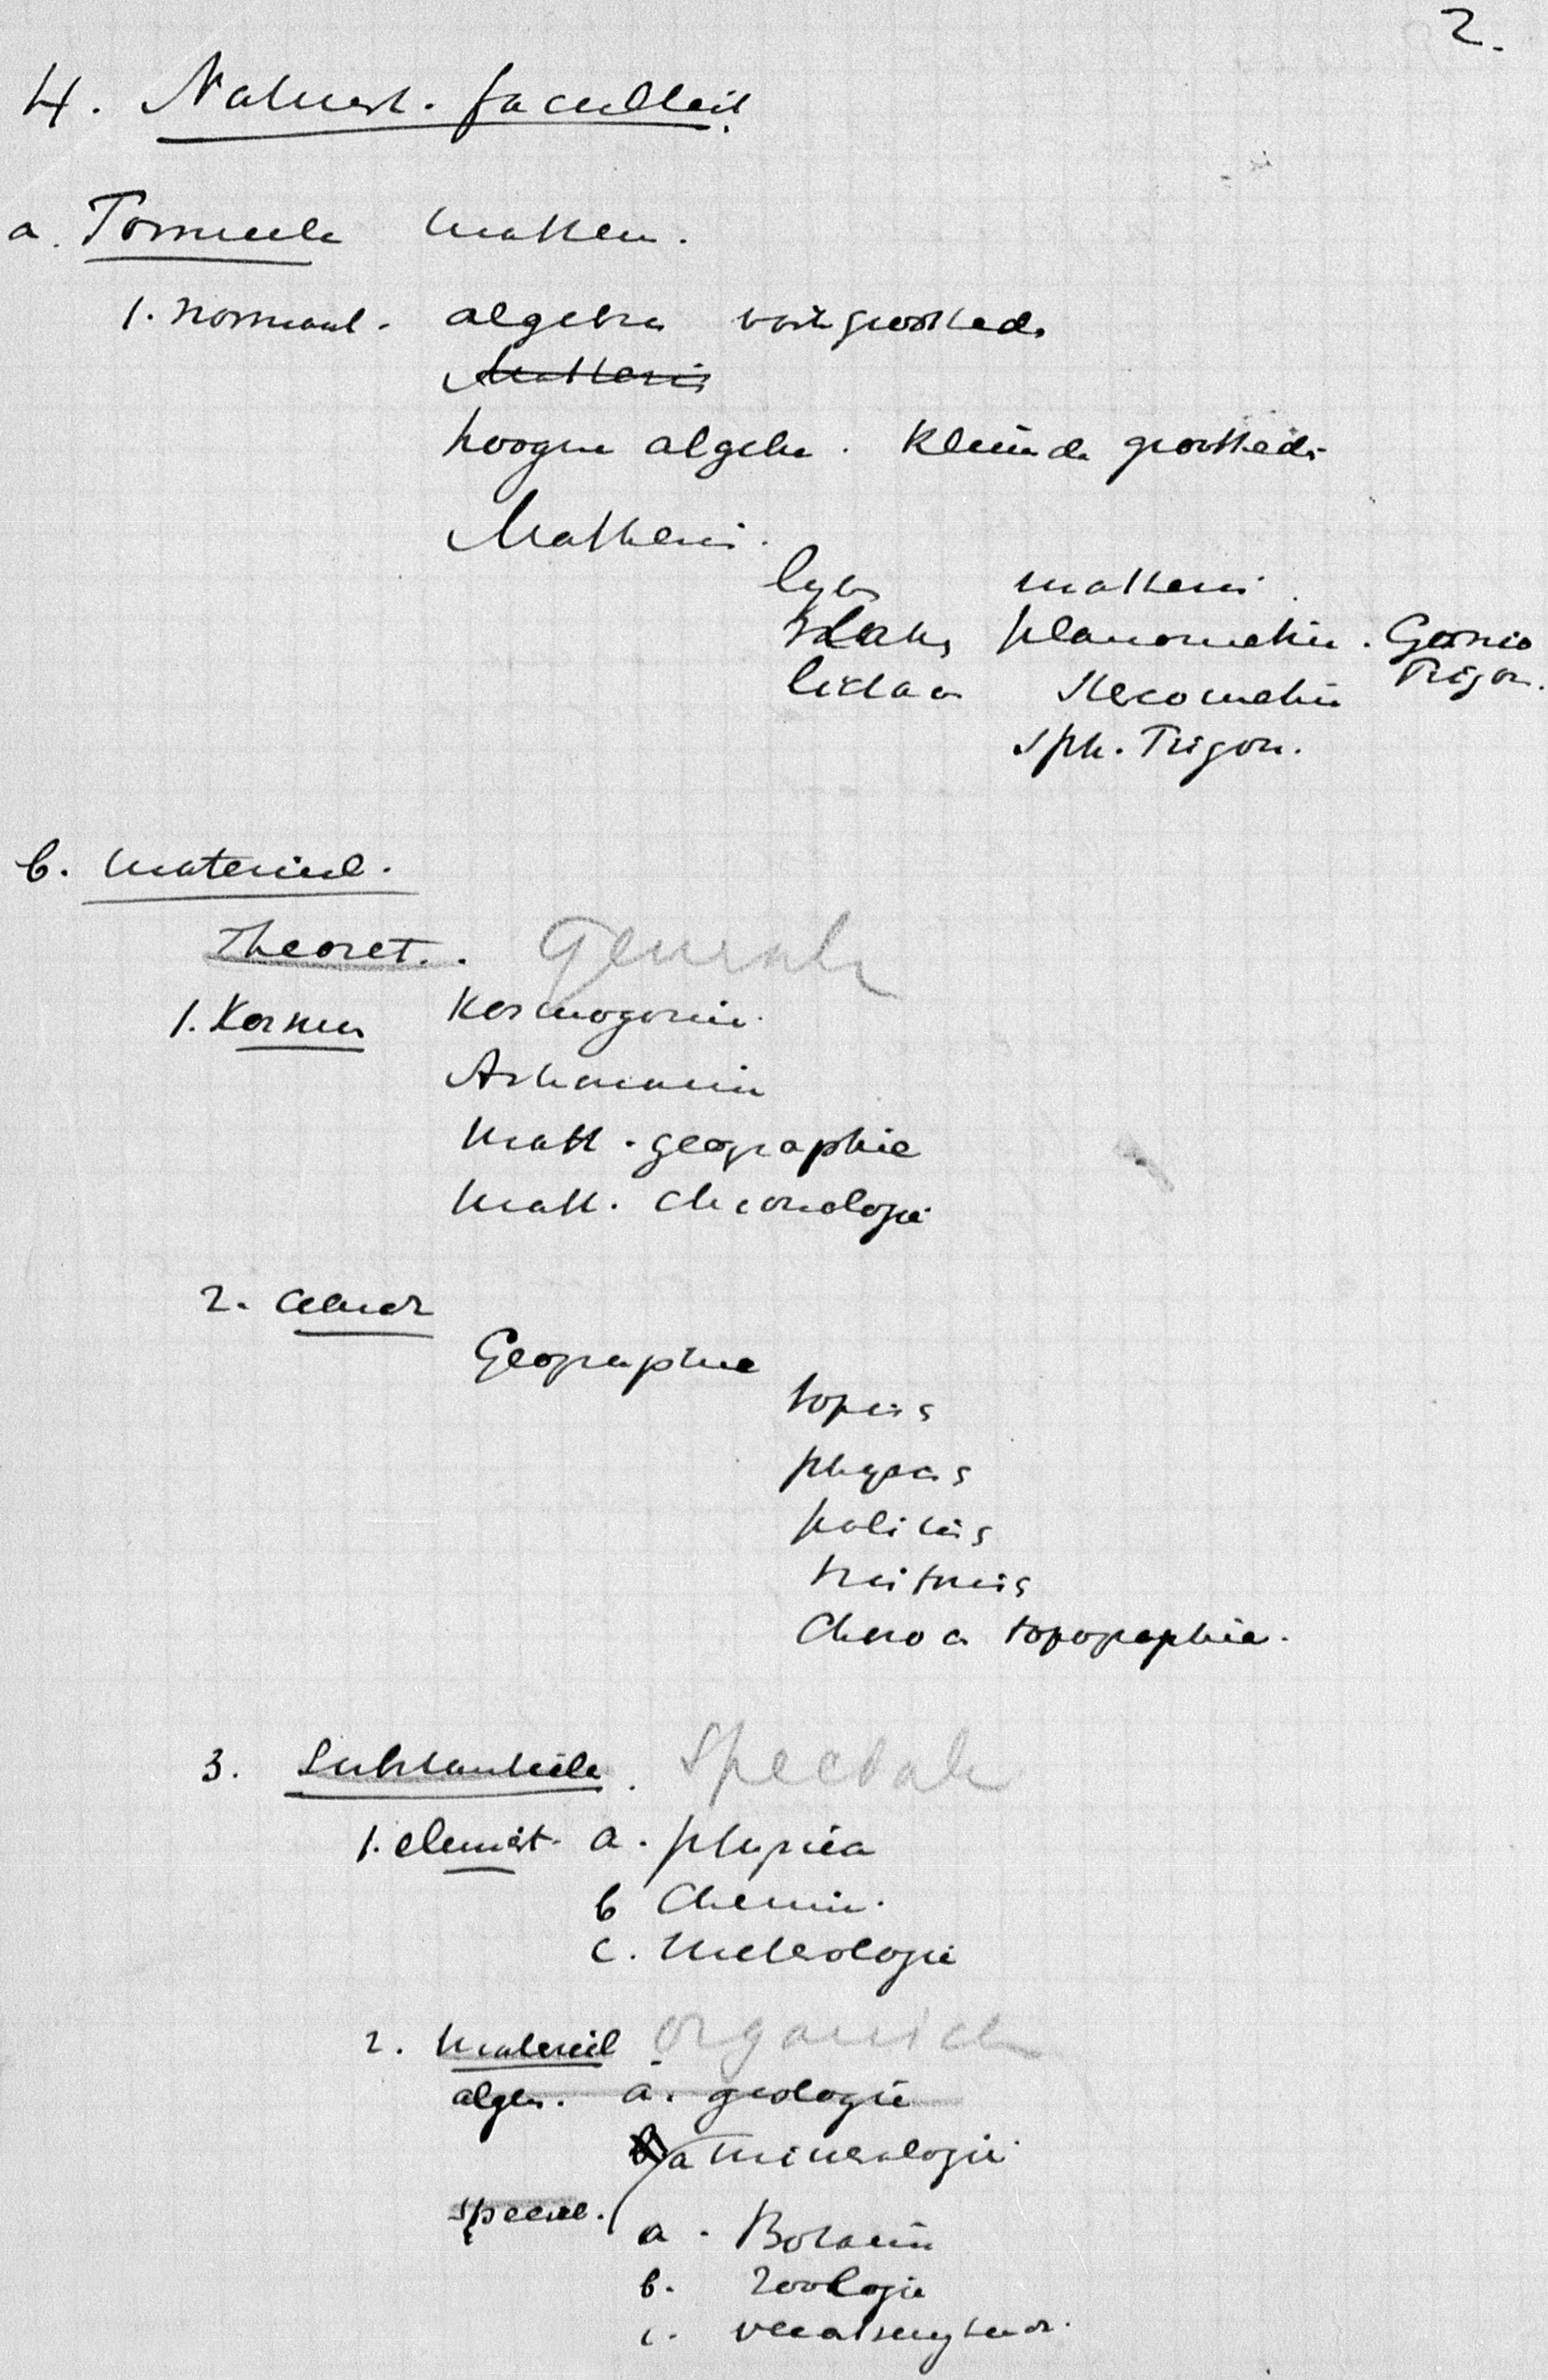 2.
4. Natuurk. faculteit.
a. Formeele mathem.
1. normaal. algebra vaste grootheds
Mathesis
hoogere algebr. kleiende grootheds
Mathesis.
lijn mathesis.
vlakke planometrie. Gonio
Trigon.
lichaam Stereometrie
sph. Trigon.
b. materieel.
Theoret.. Generale
1. Kosmos Kosmogonie.
Astronomie
Math. geographie
Math. Chronologie
2. aarde
Geographie
topois
physeis
politeis
Choro a topographie.
3. Substantieele. Speciale
1. element. a. physica
b Chemie.
c. Meteologie
2. Materieel organisch
algem. a. geologie
b a mineralogie.
speciel.
a. Botanie
b. Zoologie
c.